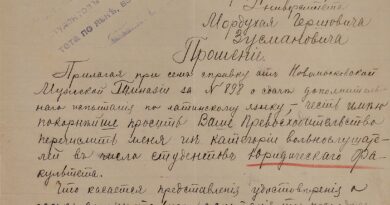 Университета
Мордухая Гершовича
Зусмановича
Прошеніе.
Прилагая при семъ справку отъ Новомосковской
Мужской Гимназіи за № 898 о сдачѣ дополнитель-
наго испытанія по латинскому языку, честь имѣю
покорнѣйше просить Ваше Превосходительство
перечислить меня изъ категоріи вольнослушате-
лей въ число студентовъ Юридическаго Фа-
культета.
Что касается представленія удостовѣренія о